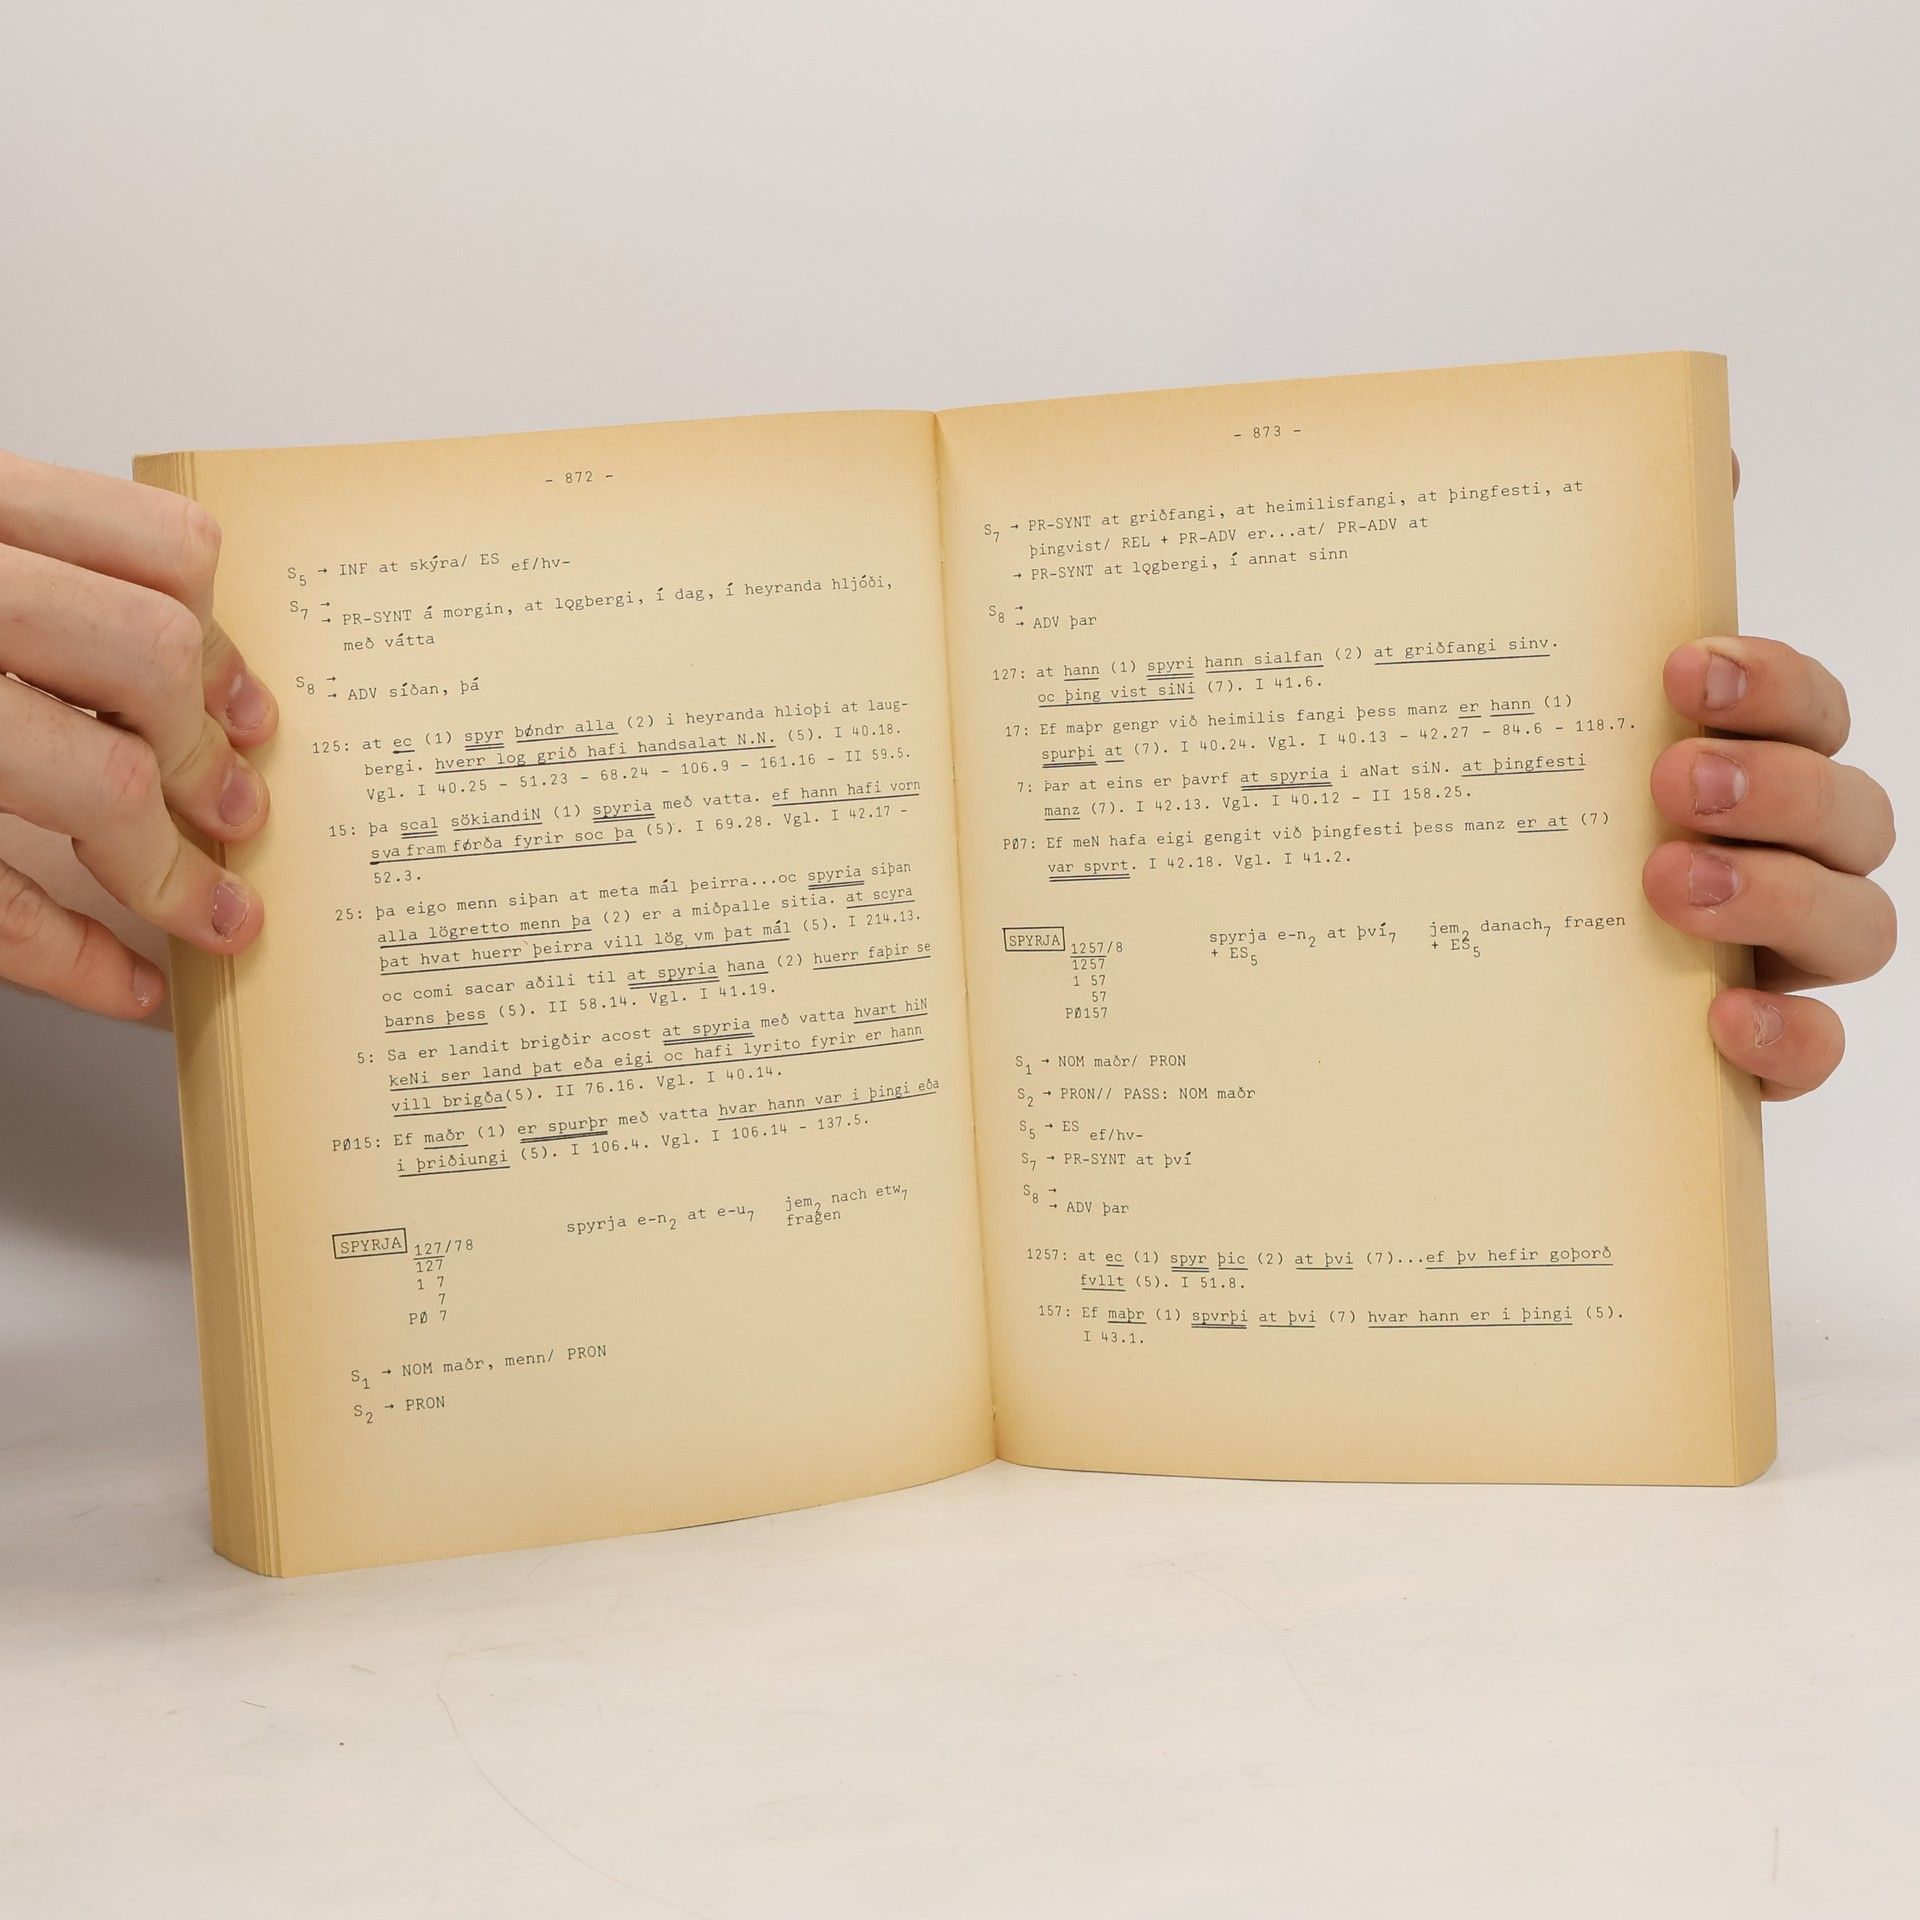 - 872 -
S5 → INF at skýra/ ES ef/hv-
S7 →
→ PR-SYNT á morgin, at lǫgbergi, í dag, í heyranda hljóði,
með vátta
S8 →
→ ADV síðan, þá
125: at ec (1) spyr bøndr alla (2) i heyranda hlioþi at laug-
bergi. hverr log grið hafi handsalat N.N. (5). I 40.18.
Vgl. I 40.25 - 51.23 - 68.24 - 106.9 - 161.16 - II 59.5.
15: þa scal sökiandiN (1) spyria með vatta. ef hann hafi vorn
sva fram førða fyrir soc þa (5). I 69.28. Vgl. I 42.17 -
52.3.
25: þa eigo menn siþan at meta mál þeirra...oc spyria siþan
alla lögretto menn þa (2) er a miðpalle sitia. at scyra
þat hvat huerr þeirra vill lög vm þat mál (5). I 214.13.
oc comi sacar aðili til at spyria hana (2) huerr faþir se
barns þess (5). II 58.14. Vgl. I 41.19.
5: Sa er landit brigðir acost at spyria með vatta hvart hiN
keNi ser land þat eða eigi oc hafi lyrito fyrir er hann
vill brigða(5). II 76.16. Vgl. I 40.14.
PØ15: Ef maðr (1) er spurþr með vatta hvar hann var i þingi eða
i þriðiungi (5). I 106.4. Vgl. I 106.14 - 137.5.
SPYRJA 127/78 spyrja e-n2 at e-u7 jem2 nach etw7
fragen
127
1 7
7
PØ 7
S1 → NOM maðr, menn/ PRON
S2 → PRON
- 873 -
S7 → PR-SYNT at griðfangi, at heimilisfangi, at þingfesti, at
þingvist/ REL + PR-ADV er...at/ PR-ADV at
→ PR-SYNT at lǫgbergi, í annat sinn
S8 →
→ ADV þar
127: at hann (1) spyri hann sialfan (2) at griðfangi sinv.
oc þing vist siNi (7). I 41.6.
17: Ef maþr gengr við heimilis fangi þess manz er hann (1)
spurþi at (7). I 40.24. Vgl. I 40.13 - 42.27 - 84.6 - 118.7.
7: Þar at eins er þavrf at spyria i aNat siN. at þingfesti
manz (7). I 42.13. Vgl. I 40.12 - II 158.25.
PØ7: Ef meN hafa eigi gengit við þingfesti þess manz er at (7)
var spvrt. I 42.18. Vgl. I 41.2.
SPYRJA 1257/8 spyrja e-n2 at því7 jem2 danach7 fragen
+ ES5 + ES5
1257
1 57
57
PØ157
S1 → NOM maðr/ PRON
S2 → PRON// PASS: NOM maðr
S5 → ES ef/hv-
S7 → PR-SYNT at því
S8 →
→ ADV þar
1257: at ec (1) spyr þic (2) at þvi (7)...ef þv hefir goþorð
fvllt (5). I 51.8.
157: Ef maþr (1) spvrþi at þvi (7) hvar hann er i þingi (5).
I 43.1.